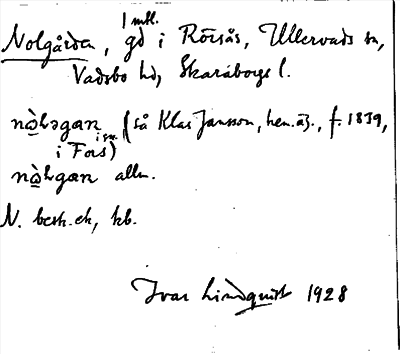 1 mtl.
Nolgården, gd i Rörsås, Ullervads sn,
Vadsbo hd, Skaraborgs l.
nòlɘgan (så Klas Jansson, hem.äg., f. 1839,
i Fors)
nòlgan allm.
N. besk.ek, kb.
Ivar Lindquist 1928